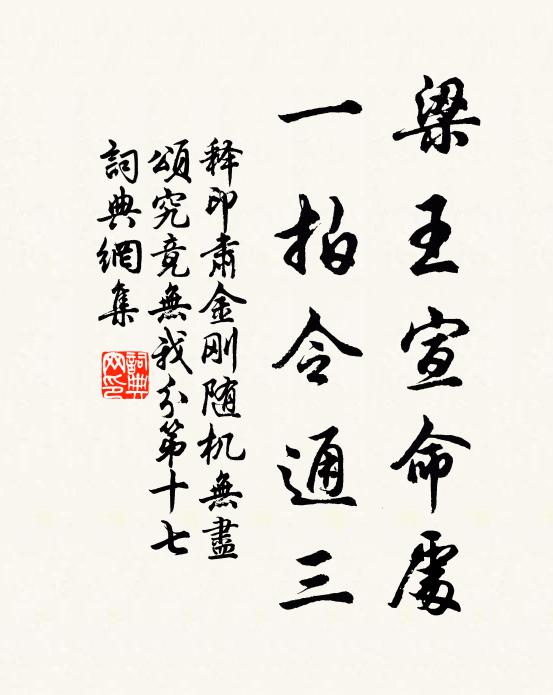 梁王宣命處
一拍令通三
释印肃金刚随机無盡
頌究竟無我分第十七
詞典網集
詞典網印